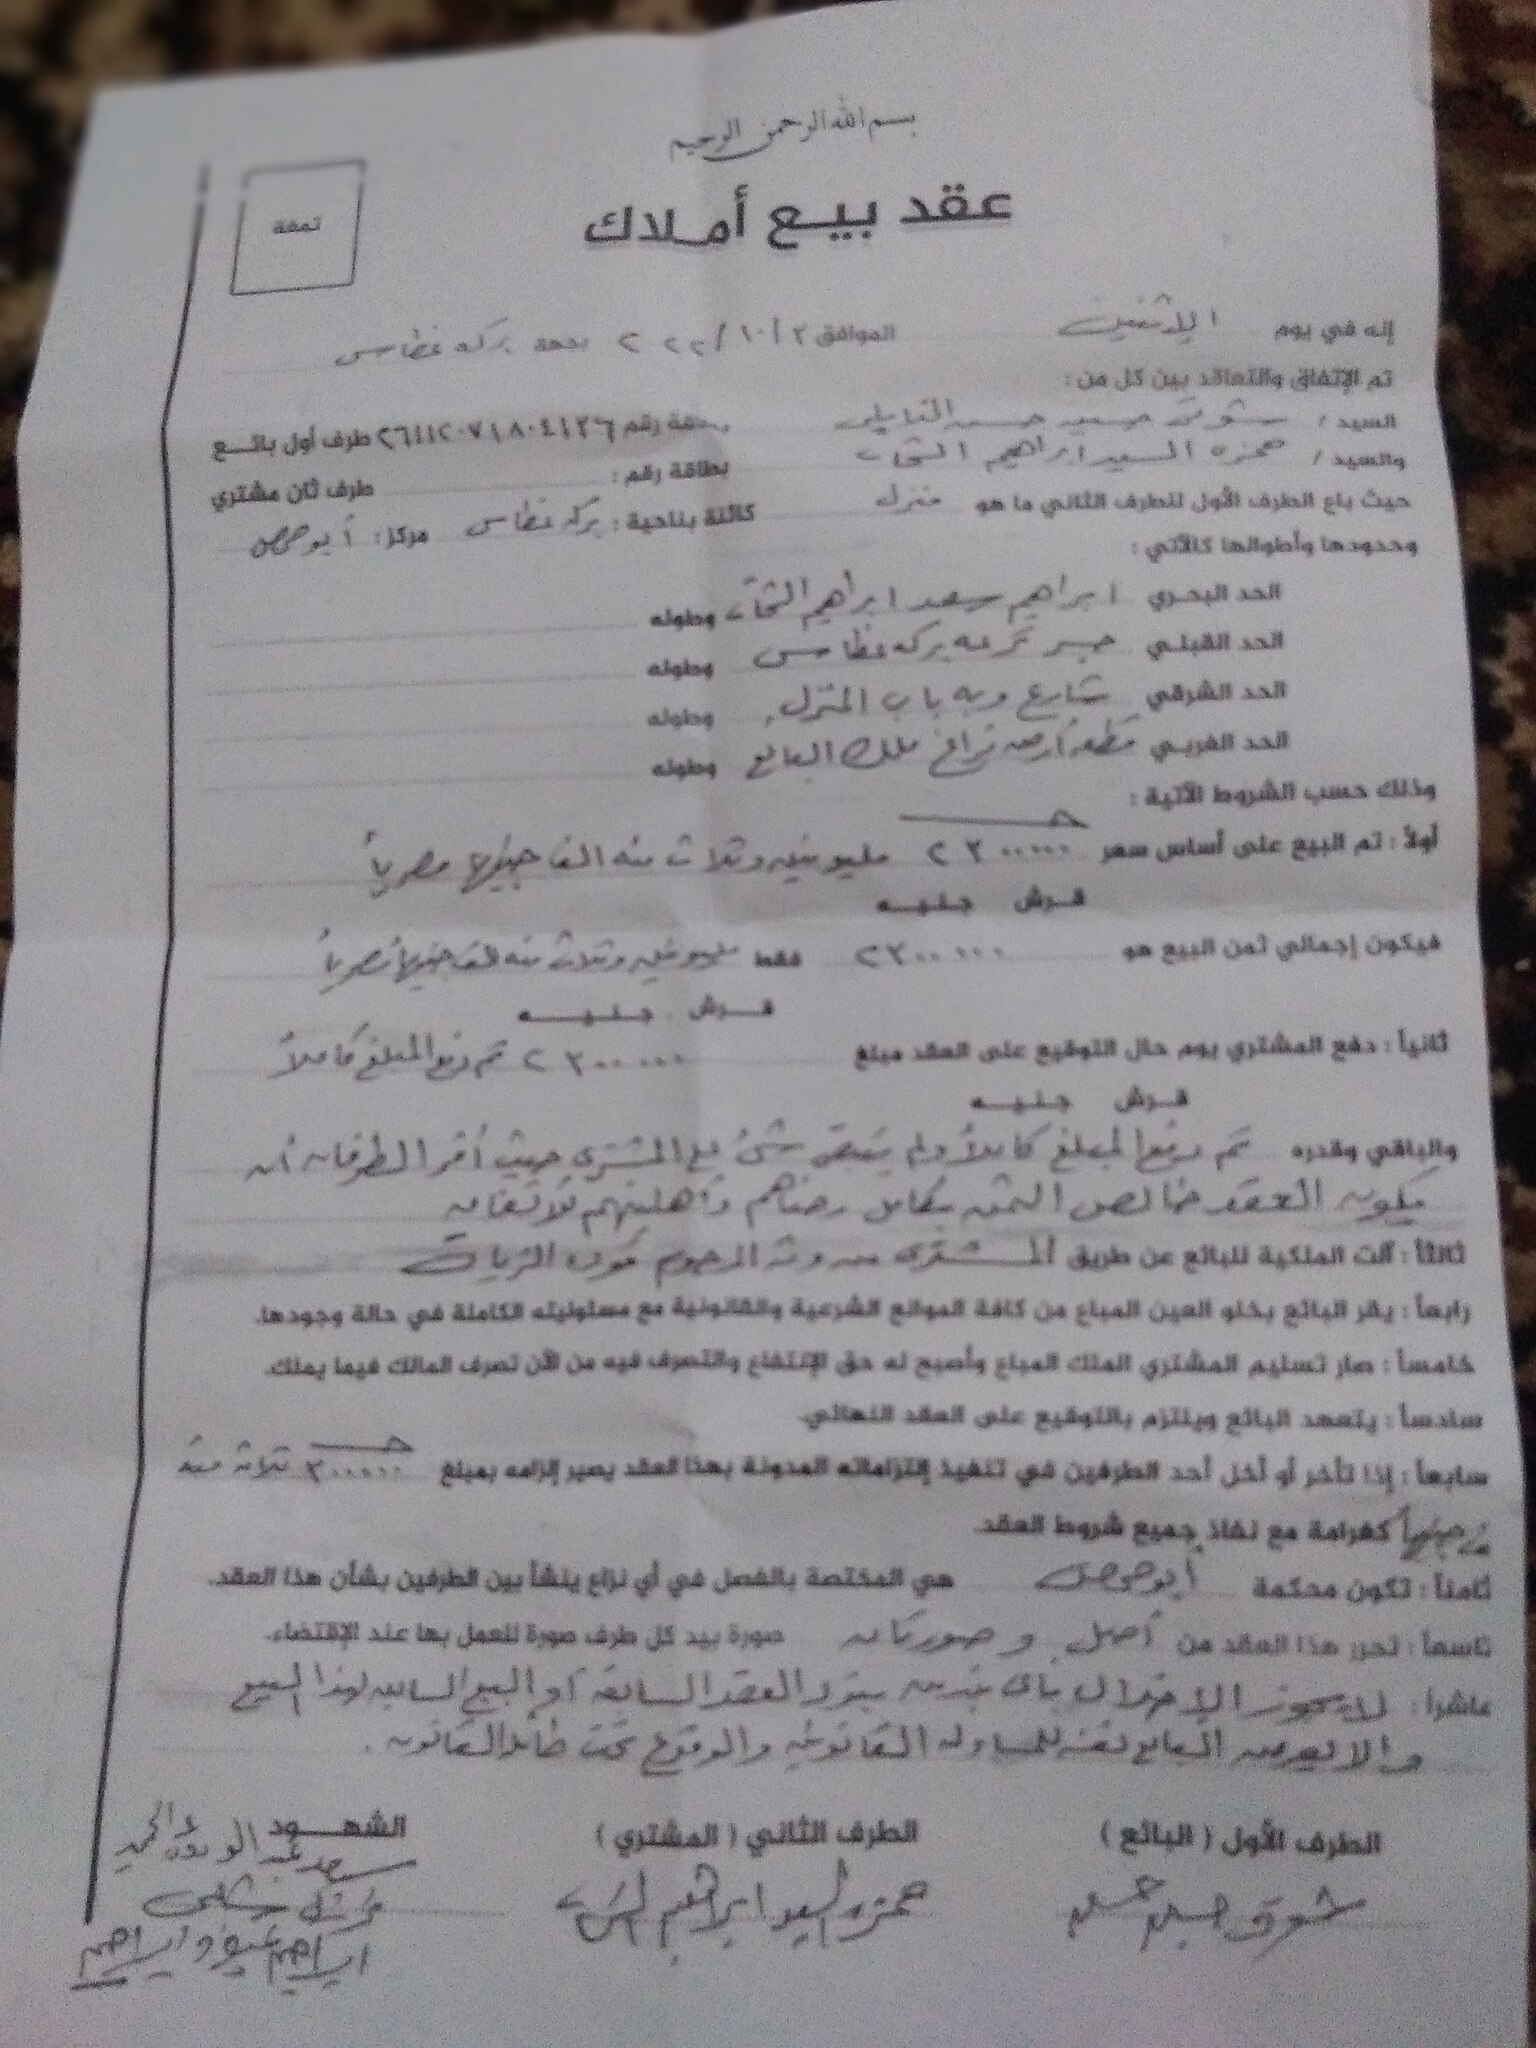 بسم الله الرحمن الرحيم
عقد بيع أملاك
تمغة
إنه في يوم الإثنين الموافق ٣ / ١٠ / ٢٠٢٢ بجهة بركة غطاس
تم الإتفاق والتعاقد بين كل من :
السيد / شوقى حسين حسن بطاقة رقم ٢٦١١٢٠٧١٨٠٤١٣٦ طرف أول بائع
والسيد / حمزه السيد ابراهيم الشحات بطاقة رقم : طرف ثان مشتري
حيث باع الطرف الأول للطرف الثاني ما هو منزل كائنة بناحية : بركه غطاس مركز : أبو حمص
وحدودها وأطوالها كالآتي :
الحد البحري ابراهيم سعد ابراهيم الشحات وطوله
الحد القبلي جسر ترعه بركه غطاس وطوله
الحد الشرقي شارع وبه باب المنزل وطوله
الحد الغربي قطعه أرض فراغ ملك البائع وطوله
وذلك حسب الشروط الآتية :
أولاً : تم البيع على أساس سعر ٢٣٠٠٠٠٠ مليونين وثلاث مئه الف جنيها مصرياً
قرش جنيه
فيكون إجمالي ثمن البيع هو ٢٣٠٠٠٠٠ فقط مليونين وثلاث مئه الف جنيها مصرياً
قرش جنيه
ثانياً : دفع المشتري يوم حال التوقيع على العقد مبلغ ٢٣٠٠٠٠٠ تم دفع المبلغ كاملاً
قرش جنيه
والباقي وقدره تم دفع المبلغ كاملاً ولم يتبقى شئ على المشترى حيث أقر الطرفان أن
يكون العقد خالص الثمن بكامل رضاهم وأهليتهم للاتفاق
ثالثاً : آلت الملكية للبائع عن طريق المشترى من ورثة المرحوم
رابعاً : يقر البائع بخلو العين المباع من كافة الموانع الشرعية والقانونية مع مسئوليته الكاملة في حالة وجودها.
خامساً : صار تسليم المشتري الملك المباع وأصبح له حق الإنتفاع والتصرف فيه من الآن تصرف المالك فيما يملك.
سادساً : يتعهد البائع ويلتزم بالتوقيع على العقد النهائي.
سابعاً : إذا تأخر أو أخل أحد الطرفين في تنفيذ إلتزاماته المدونة بهذا العقد يصير إلزامه بمبلغ ٣٠٠٠٠٠ ثلاث مئة
كغرامة مع نفاذ جميع شروط العقد.
ثامناً : تكون محكمة أبو حمص هي المختصة بالفصل في أي نزاع ينشأ بين الطرفين بشأن هذا العقد.
تاسعاً : تحرر هذا العقد من أصل وصورتان صورة بيد كل طرف صورة للعمل بها عند الإقتضاء.
عاشراً : لا يجوز الاخلال بأى بند من بنود العقد السابقة أو البيع السابق لهذا المبيع
والا يعرض البائع نفسه للمساءلة القانونية والوقوع تحت طائلة القانون .
الطرف الأول ( البائع ) الطرف الثاني ( المشتري ) الشهود
شوقى حسين حسن حمزه السيد ابراهيم